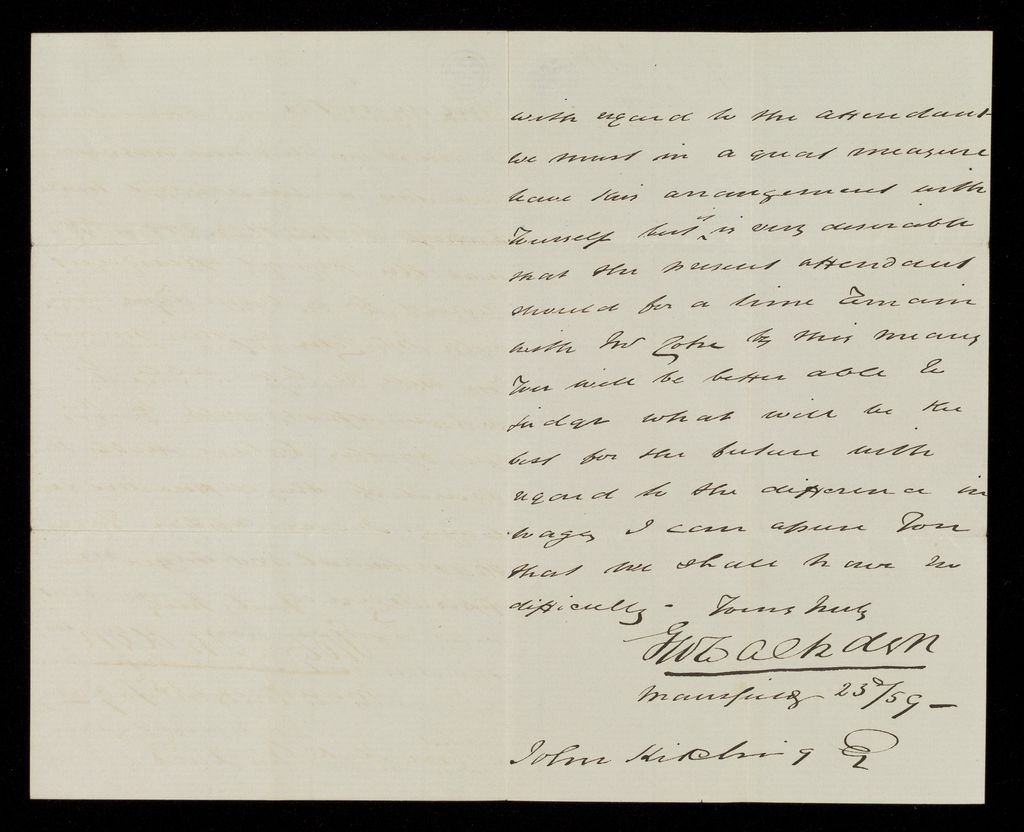 with regard to the attendant
we must in a great measure
leave this arrangement with
Yourself but it is very desirable
that the present attendant
should for a time remain
with Mr by this means
You will be better able to
judge what will be the
best for the future with
regard to the difference in
wages I can assure You
that we shall have no
difficulty - Yours truly
Mansfield 23d/59 -
John Kitching Eq